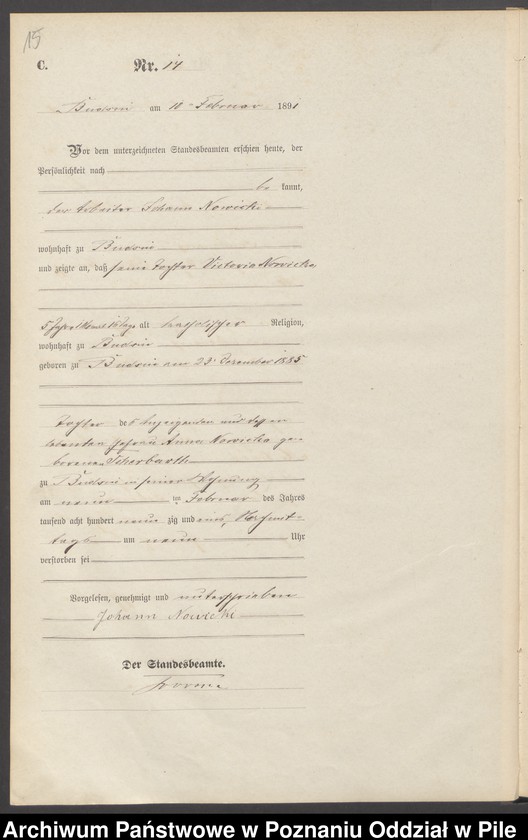 15
C. Nr. 14
am 10ⁿ Februar 1891
Vor dem unterzeichneten Standesbeamten erschien heute, der
Persönlichkeit nach
be kannt,
der Arbeiter Johann Nowicki
wohnhaft zu
und zeigte an, daß seine Tochter Victoria Nowicka
5 Jahre 1 Monat 15 Tage alt katholischer Religion,
wohnhaft zu
geboren zu am 23ⁿ Dezember 1885
Tochter des Anzeigenden und dessen
lebenden Ehefrau Anna Nowicka ge-
borenen Scherbarth
zu in seiner Wohnung
am neun ten Februar des Jahres
tausend acht hundert neun zig und eins, Nachmit-
tags um neun Uhr
verstorben sei
Vorgelesen, genehmigt und unterschrieben
Johann Nowicki
Der Standesbeamte.
Archiwum Państwowe w Poznaniu Oddział w Pile